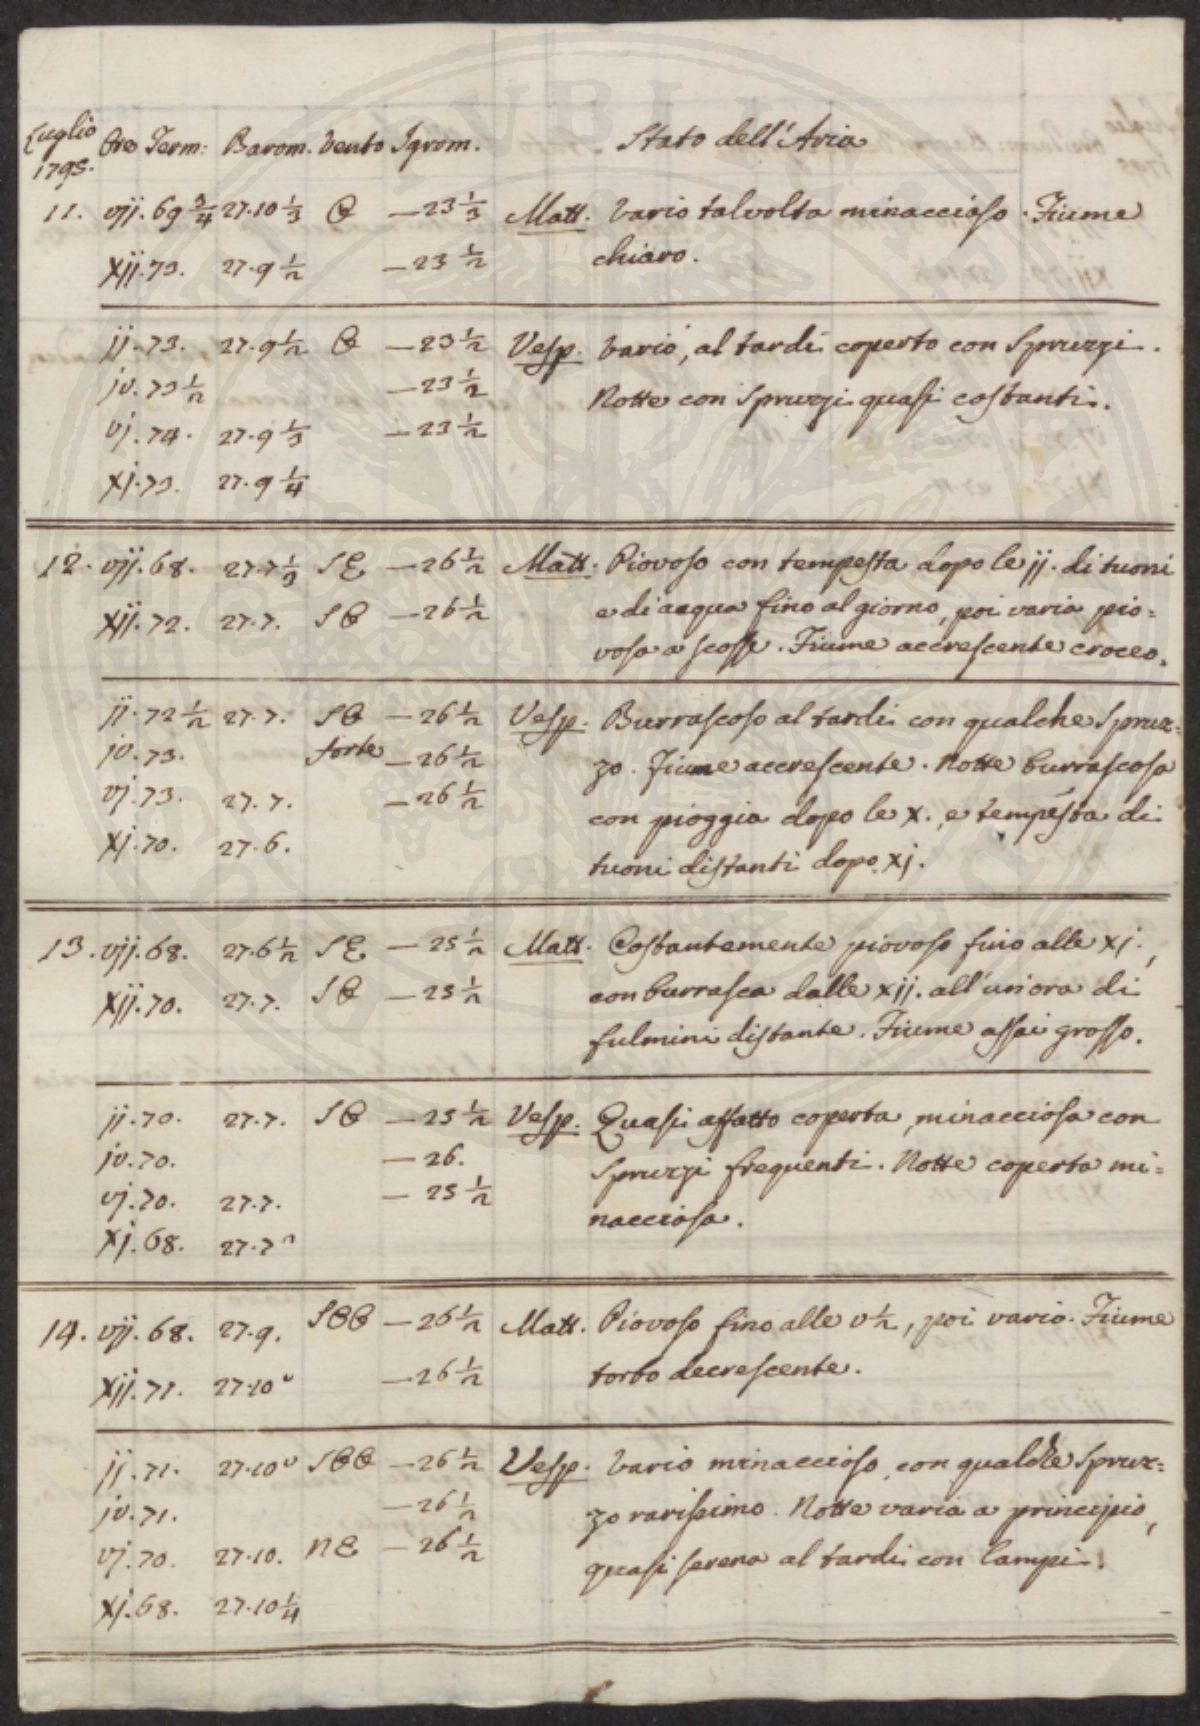 Luglio 1795. Ore Term: Barom. Vento Igrom. Stato dell'Aria
11. vij. 69 3/4 27.10 1/3 O —23 1/3 Matt. Vario talvolta minaccioso. Fiume
xij. 73. 27.9 1/2 —23 1/2 chiaro.
ij. 73. 27.9 1/2 O —23 1/2 Vesp. Vario, al tardi coperto con Spruzzi.
iv. 73 1/2 —23 1/2 Notte con Spruzzi quasi costanti.
vj. 74. 27.9 1/3 —23 1/2
xj. 73. 27.9 1/4
12. vij. 68. 27.7 1/3 SE —26 1/2 Matt. Piovoso con tempesta dopo le ij. di tuoni
xij. 72. 27.7. SO —26 1/2 e di acqua fino al giorno, poi varia pio=
vosa a scosse. Fiume accrescente croceo.
ij. 72 1/2 27.7. SO —26 1/2 Vesp. Burrascoso al tardi con qualche Spruz=
iv. 73. forte —26 1/2 zo. Fiume accrescente. Notte burrascosa
vj. 73. 27.7. —26 1/2 con pioggia dopo le x., e tempesta di
xj. 70. 27.6. tuoni distanti dopo xj.
13. vij. 68. 27.6 1/2 SE —25 1/2 Matt. Costantemente piovoso fino alle xj.,
xij. 70. 27.7. SO —25 1/2 con burrasca dalle xij. all'un'ora di
fulmini distante. Fiume assai grosso.
ij. 70. 27.7. SO —25 1/2 Vesp. Quasi affatto coperta, minacciosa con
iv. 70. —26. Spruzzi frequenti. Notte coperta mi=
vj. 70. 27.7. —25 1/2 nacciosa.
xj. 68. 27.7
14. vij. 68. 27.9. SOO —26 1/2 Matt. Piovoso fino alle v 1/2, poi vario. Fiume
xij. 71. 27.10 —26 1/2 torbo decrescente.
ij. 71. 27.10 SOO —26 1/2 Vesp. Vario minaccioso, con qualche Spruz=
iv. 71. —26 1/2 zo rarissimo. Notte varia a principio,
vj. 70. 27.10. NE —26 1/2 quasi serena al tardi con lampi.
xj. 68. 27.10 1/4